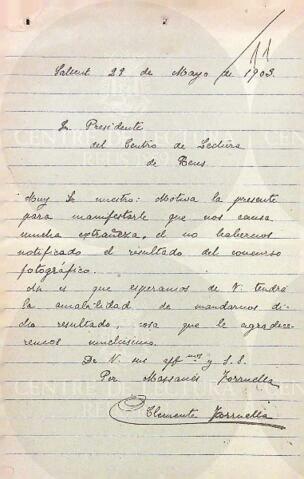 11
Sallent 29 de Mayo de 1903.
Sr. Presidente
del Centro de Lectura
de Reus
Muy Sr. nuestro: Motiva la presente
para manifestarle que nos causa
mucha extrañeza, el no habernos
notificado el resultado del concurso
fotográfico.
Asi es que esperamos de V. tendrá
la amabilidad de mandarnos di-
cho resultado, cosa que le agradece-
remos muchísimo.
De V. sus affmos y S.S.
Por Massanés Torruella
Clemente Torruella